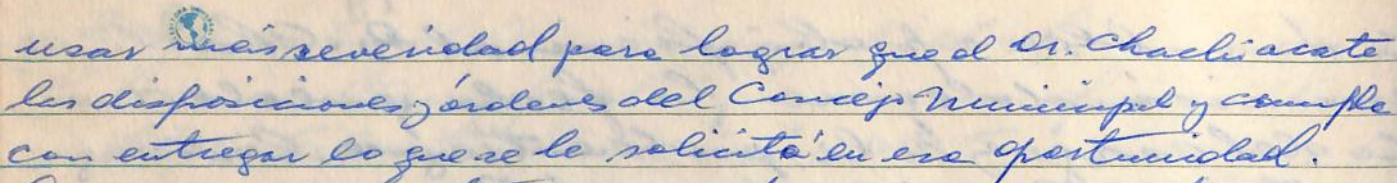 usar más severidad para lograr que el Dr. Chachi acate
las disposiciones y órdenes del Concejo Municipal y cumpla
con entregar lo que se le solicitó en esa oportunidad.